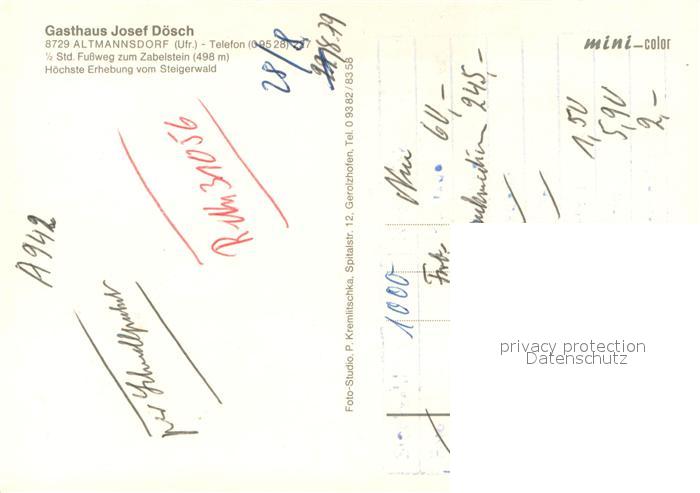 Gasthaus Josef Dösch
8729 ALTMANNSDORF (Ufr.) - Telefon (09528)
½ Std. Fußweg zum Zabelstein (498 m)
Höchste Erhebung vom Steigerwald
28/8
mini-color
Foto-Studio. P. Kremlitschka, Spitalstr. 12, Gerolzhofen, Tel. 0 93 82 / 83 58
A942
31056
per Schnellpaket
60,-
245,-
1,50
5,90
2,-
1000
privacy protection
Datenschutz